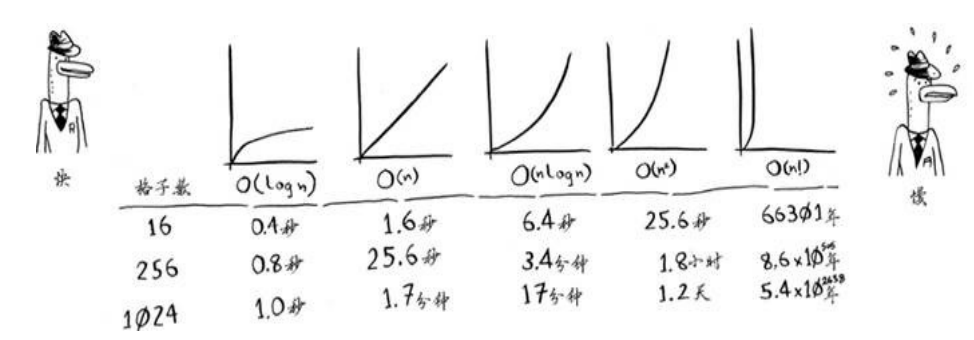 A
快
格子数 O(logn) O(n) O(nlogn) O(n²) O(n!)
16 0.4秒 1.6秒 6.4秒 25.6秒 66301年
256 0.8秒 25.6秒 3.4分钟 1.8小时 8.6x10⁵⁰⁵年
1024 1.0秒 1.7分钟 17分钟 1.2天 5.4x10²⁶³⁸年
A
慢